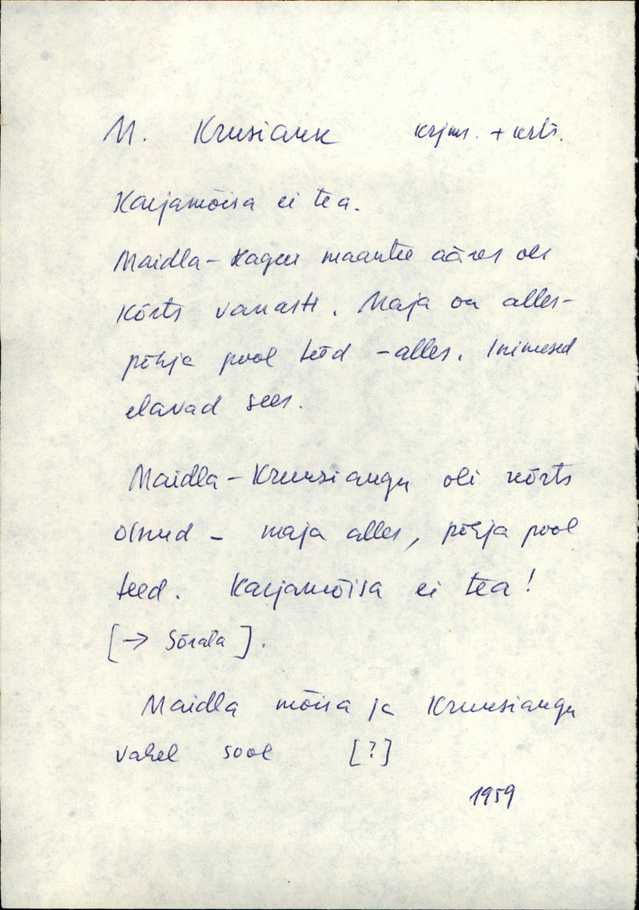 M. Krusiauk krjms. + krts.
Karjamõisa ei tea.
Maidla - Kageri maantee ääres oli
kõrts vanasti. Maja on alles -
põhja pool teed - alles. Inimesed
elavad sees.
Maidla - Kruusiaugu oli kõrts
olnud - maja alles, põhja pool
teed. Karjamõisa ei tea!
[→ Sõrala].
Maidla mõisa ja Kruusiaugu
vahel sool [?]
1959